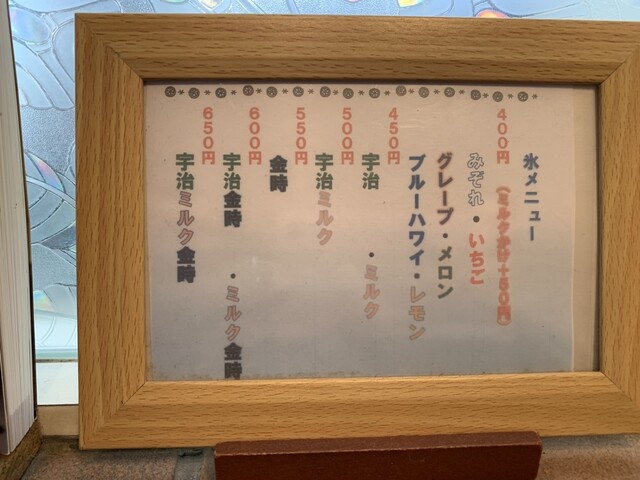 氷メニュー
400円（ミルクかけ+50円）
みぞれ・いちご
グレープ・メロン
ブルーハワイ・レモン
450円
宇治・ミルク
500円
宇治ミルク
550円
金時
600円
宇治金時・ミルク金時
650円
宇治ミルク金時